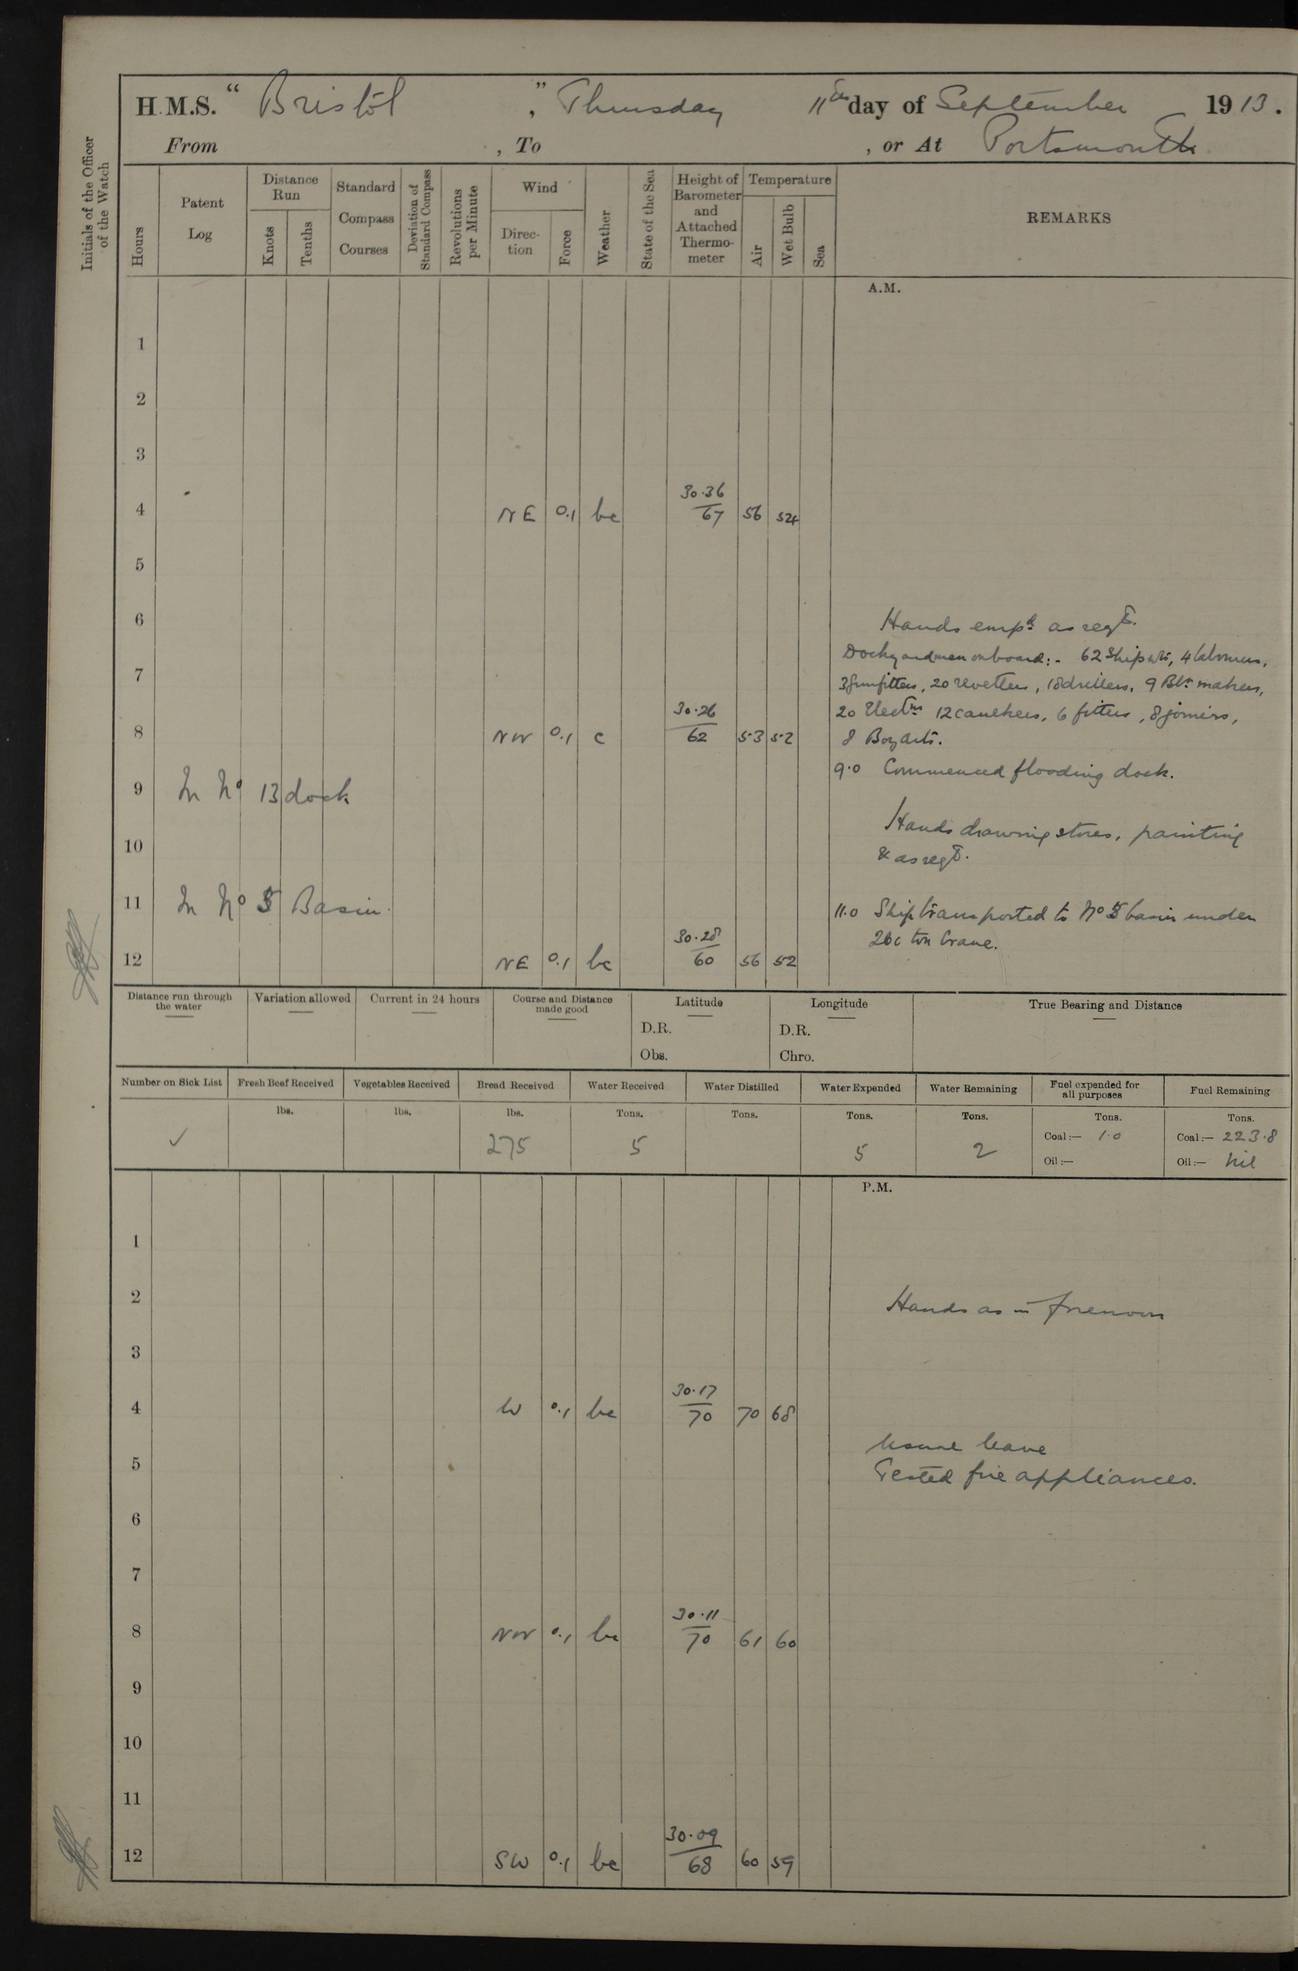 H.M.S. "Bristol", Thursday 11th day of September 1913.
From , To , or At Portsmouth
Initials of the Officer of the Watch
Hours
Patent Log
Distance Run
Knots
Tenths
Standard Compass Courses
Deviation of Standard Compass
Revolutions per Minute
Wind
Direction
Force
Weather
State of the Sea
Height of Barometer and Attached Thermometer
Temperature
Air
Wet Bulb
Sea
REMARKS
A.M.
1
2
3
4 NE 0.1 bc 30.36/67 56 54
5
6 Hands empd as reqd.
Dockyardmen onboard:- 62 Shipwts, 4 labourers,
7
3 Gunfitters, 20 rivetters, 18 drillers, 9 Blr makers,
20 Electns 12 caulkers, 6 fitters, 8 joiners,
8 NW 0.1 c 30.26/62 53 52
8 Boy arts.
9.0 Commenced flooding dock.
9 In No 13 dock
Hands drawing stores, painting
10
& as reqd.
11 In No 5 Basin
11.0 Ship transported to No 5 basin under
ton Crane.
12 NE 0.1 bc 30.28/60 56 52
Distance run through the water
Variation allowed
Current in 24 hours
Course and Distance made good
Latitude
D.R.
Obs.
Longitude
D.R.
Chro.
True Bearing and Distance
Number on Sick List
Fresh Beef Received
Vegetables Received
Bread Received
Water Received
Water Distilled
Water Expended
Water Remaining
Fuel expended for all purposes
Fuel Remaining
lbs. lbs. lbs. Tons. Tons. Tons. Tons. Tons. Tons.
✓ 275 5 5 2 Coal:— 1.0 Coal:— 223.8
Oil:— Oil:— Nil
P.M.
1
2 Hands as in forenoon
3
4 W 0.1 bc 30.17/70 70 68
Usual leave
5 Tested fire appliances.
6
7
8 NW 0.1 bc 30.11/70 61 60
9
10
11
12 SW 0.1 bc 30.09/68 60 59